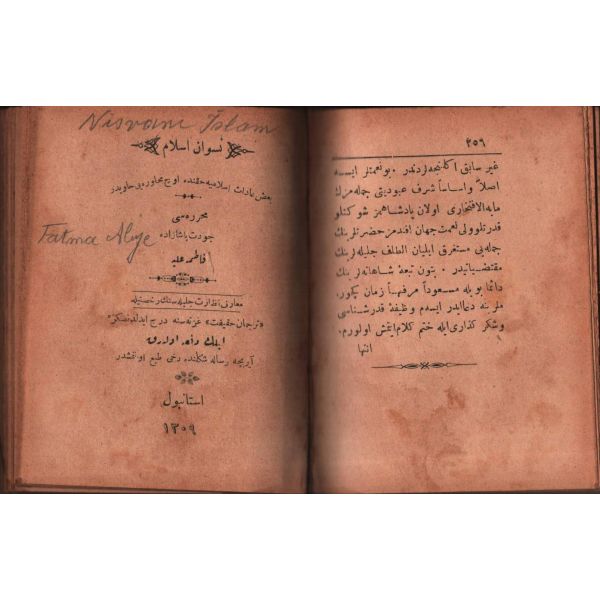 Nisvani İslam
نسوان اسلام
بعض عادات اسلامیه حقنده اوچ محاوره یی حاویدر
محرره سی
جودت پاشازاده
Fatma Aliye
فاطمه علیه
معارف نظارت جلیله سنك رخصتیله
«ترجمان حقیقت» غزته سنه درج ایدلدكدنصكره
ایلك دفعه اولارق
آیریجه رساله شكلنده دخی طبع اولنمشدر
استانبول
١٣٠٩
٢٥٦
غیر سابق اكلنجه لردندر. بونعمتلر ایسه
اصلاً واساساً شرف عبودیتی جمله مزك
مابه الافتخاری اولان پادشاهمز شوكتلو
قدرتلو ولی نعمت جهان افندمز حضرتلرینك
جمله یی مستغرق ایلیان الطاف جلیله لرینك
مقتضیاتیدر. بتون تبعهٔ شاهانه لرینك
دائما بویله مسعوداً مرفهاً زمان كچیر
ملرینه دعا ایدر ایسه م وظیفهٔ قدرشناسی
وشكر كذاری ایله ختم كلام ایتمش اولورم.
انتها